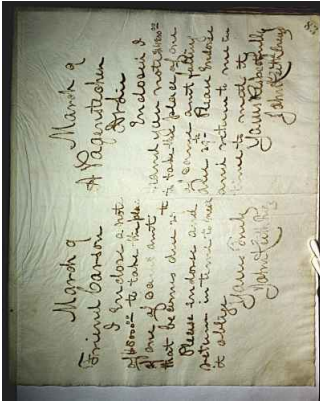 83
March 9
Friend Carson
I Enclose a note
of $8000 00 to take the place
of one of same amt
that becomes due
Please Endorse and
return in time to meet
it oblige
Yours Truly
John
March 9
A Pagenstecher
Dr Sir
Enclosed I
hand you note
to take the place of one
of same amt falling
due 29th Please Endorse
and return to me in
time to meet it
Yours Respectfully
John